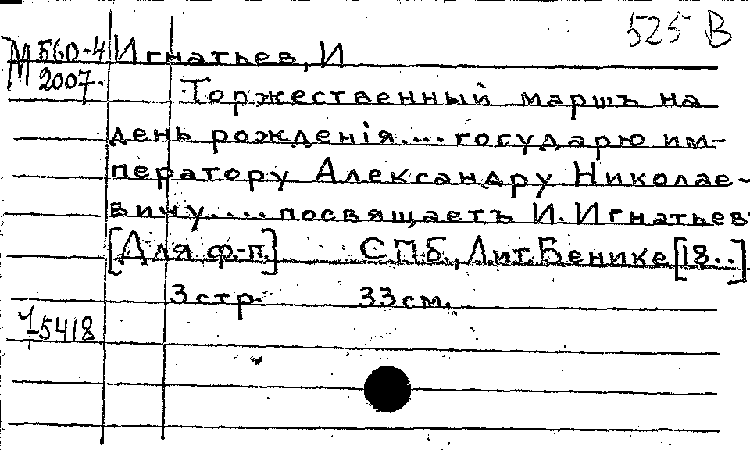 525 В
М 560-4 Игнатьев, И
2007.
Торжественный маршъ на
день рожденія.... государю им-
ператору Александру Николае-
вичу.... посвящаетъ И. Игнатьев
[Для ф-п] СПб., Лит. Бенике [18..]
3 стр. 33 см.
15418